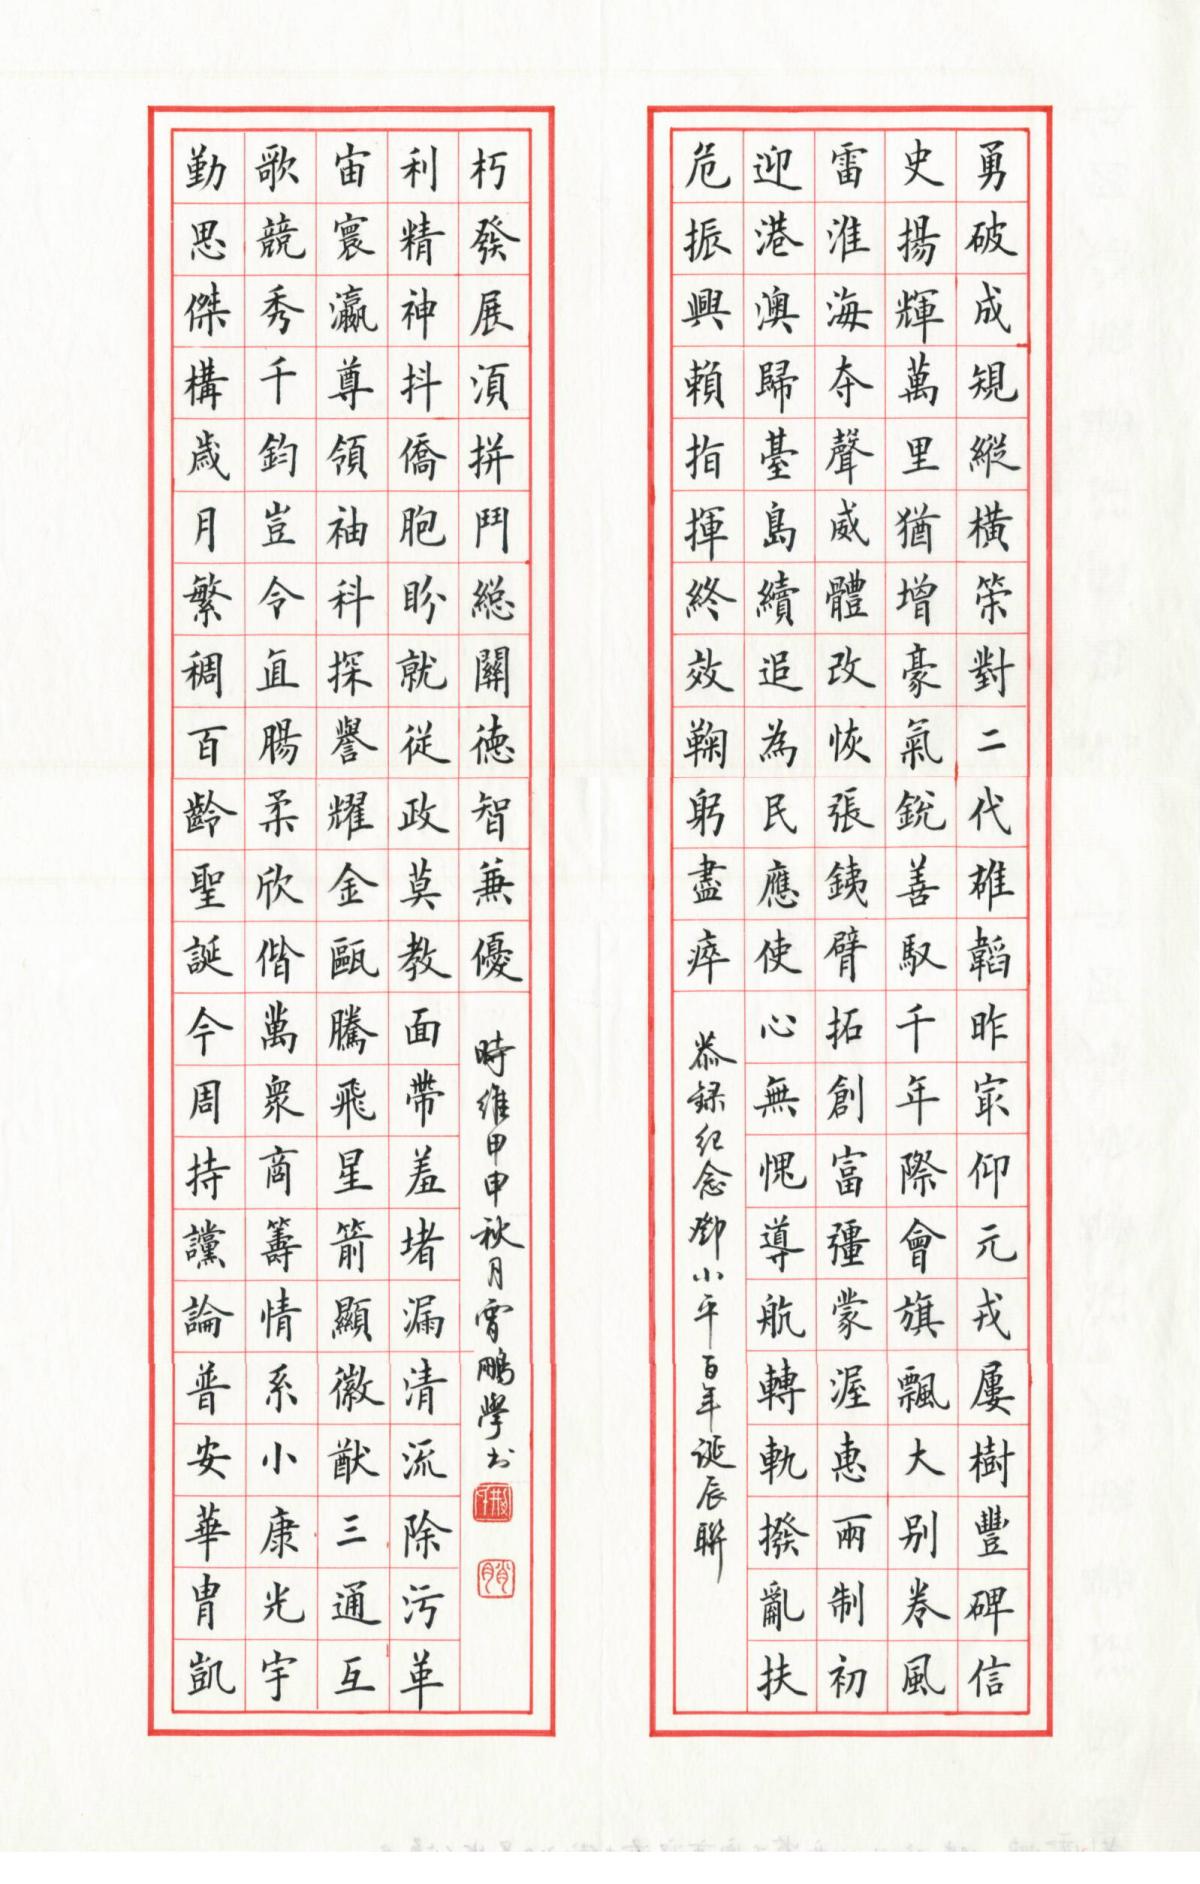 勇破成規縱橫策對二代雄韜昨冣仰元戎屢樹豐碑信
史揚輝萬里猶增豪氣銳善馭千年際會旗飄大别卷風
雷淮海夺聲威體改恢張銕臂拓創富彊蒙渥惠兩制初
迎港澳歸臺島續追為民應使心無愧導航轉軌撥亂扶
危振興賴指揮終效鞠躬盡瘁
恭録紀念鄧小平百年誕辰聯
勤思傑構歲月繁稠百齡聖誕今周持讜論普安華胄凱
歌競秀千鈞豈令直腸柔欣偕萬衆商籌情系小康光宇
宙寰瀛尊領袖科探譽耀金甌騰飛星箭顯徽猷三通互
利精神抖僑胞盼就從政莫教面帶羞堵漏清流除污革
朽發展須拼鬥總關德智兼優
時維甲申秋月霄鵬學书